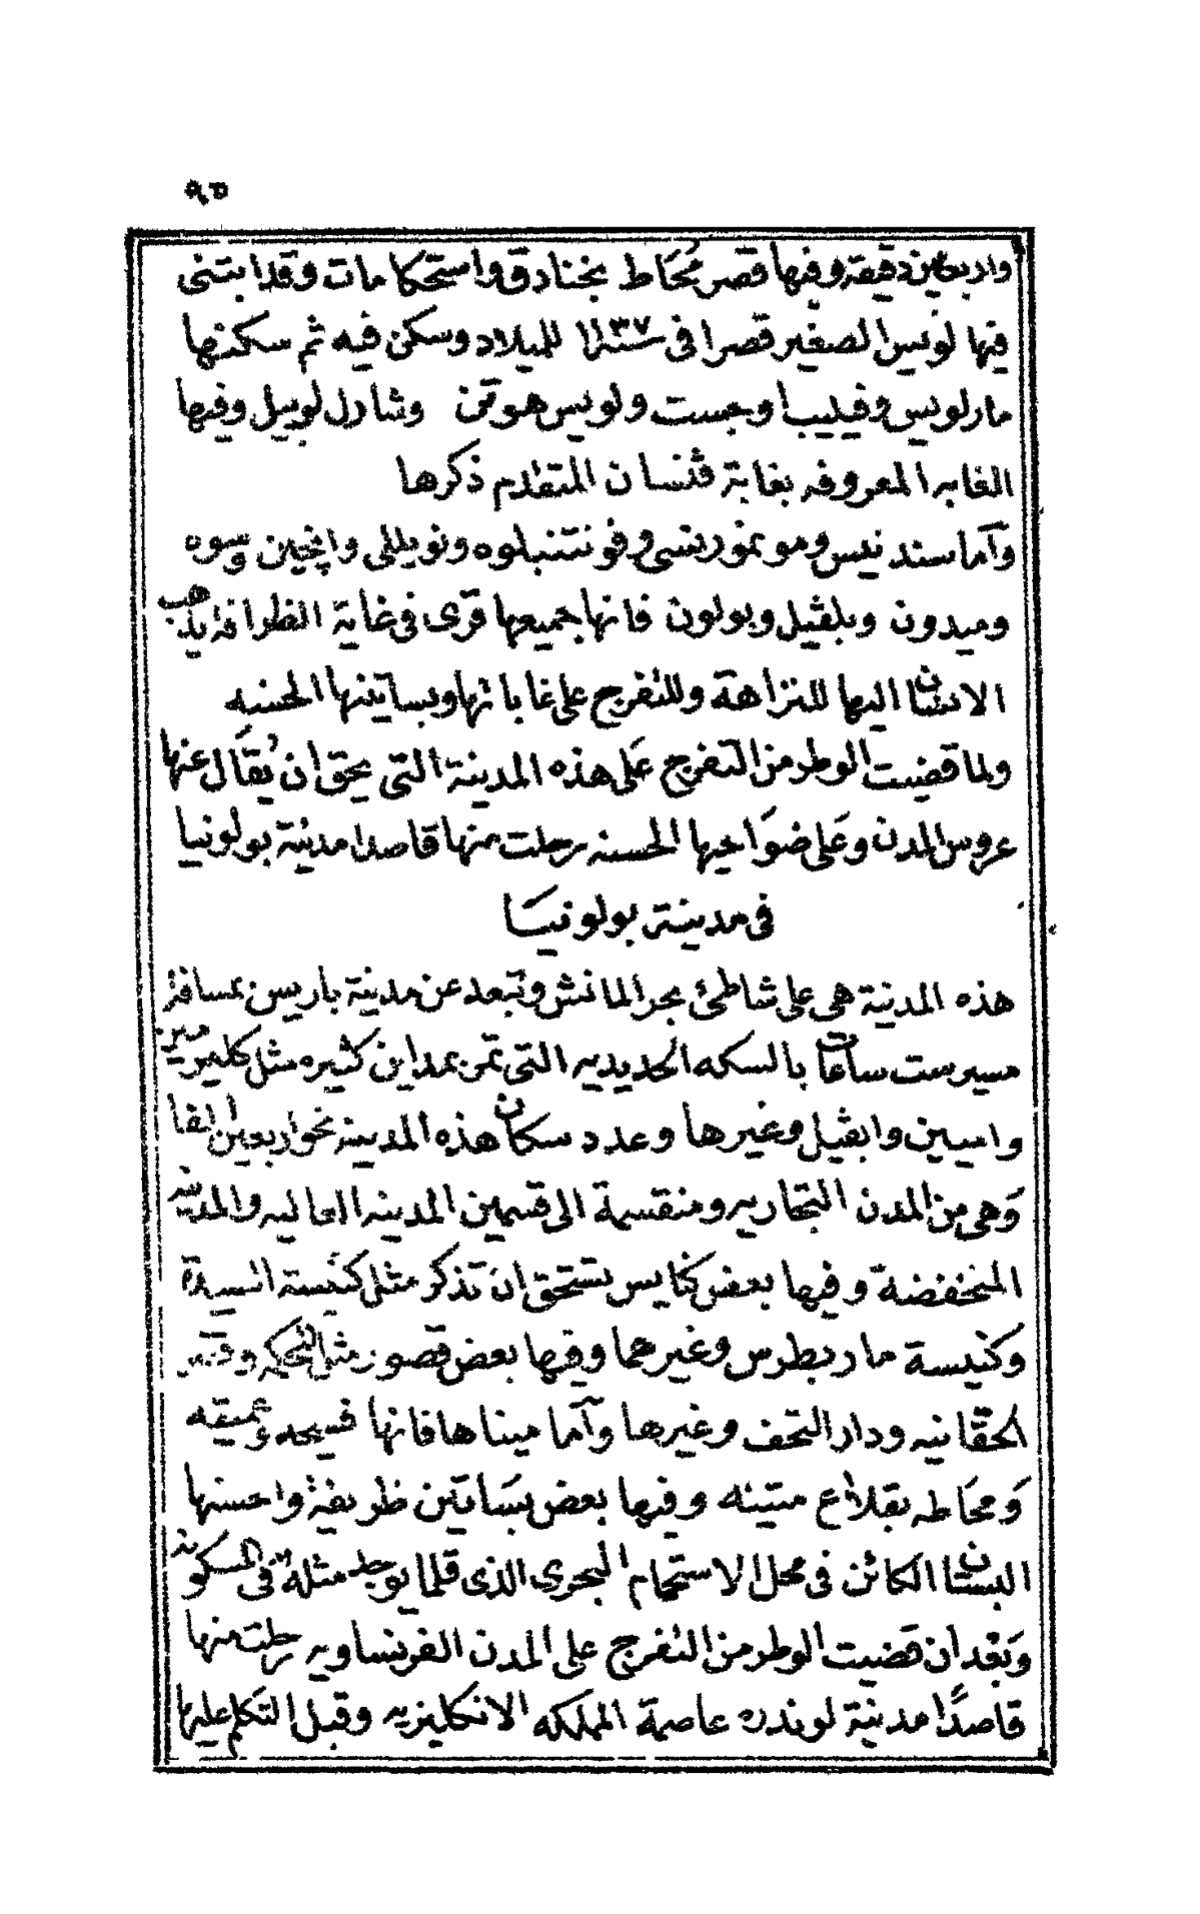 ٩٥
واربعين دقيقة وفيها قصر مُحَاط بخنادق واستحكامات وقد ابتنى
فيها لويس الصغير قصرا فى سنة ١١٣٧ للميلاد وسكن فيه ثم سكنها
مار لويس وفيليب اوجست ولويس هوتن وشارل لوبيل وفيها
الغابه المعروفه بغابة ڤنسان المتقدم ذكرها
وآما سند نيس ومونمورنسى وفونتنبلوه ونويللى وانجين وسوه
وميدون وبلڤيل وبولون فانها جميعها قرى فى غاية الظرافة يذهب
الانسان اليها للنزاهة وللتفرج على غاباتها وبساتينها الحسنه
ولما قضيت الوطر من التفرج عَلى هذه المدينة التى يحق ان يُقَال عنها
عروس المدن وعَلى ضوَاحيها الحسنه رحلت منها قاصدا مدينة بولونيا
فى مدينة بولونيَا
هذه المدينة هى على شاطئ بحر المانش وتبعد عن مدينة باريس بمسافة
مسير ست ساعات بالسكه الحديديه التى تمر بمداين كثيره مثل كليرمين
واميين وابڤيل وغيرها وعدد سكان هذه المدينة نحو اربعين الفا
وَهى من المدن التجاريه ومنقسمة الى قسمين المدينه العاليه والمدينه
المنخفضة وفيها بعض كنايس تستحق ان تذكر مثل كنيسة السيدة
وكنيسة مار بطرس وغيرهما وفيها بعض قصور مثل المحكمه وقصر
الحقانيه ودار التحف وغيرها وآما ميناها فانها فسيحه وعميقه
وَمحَاطه بقلاع متينه وفيها بعض بسَاتين ظريفة واحسنها
البستان الكائن فى محل الاستحمام البحرى الذى قلما يوجد مثله فى المسكونه
وَبعْد ان قضيت الوطر من التفرج على المدن الفرنساويه رحلت منها
قاصدًا مدينة لوندره عاصمة المملكه الانكليزيه وقبل التكلم عليها